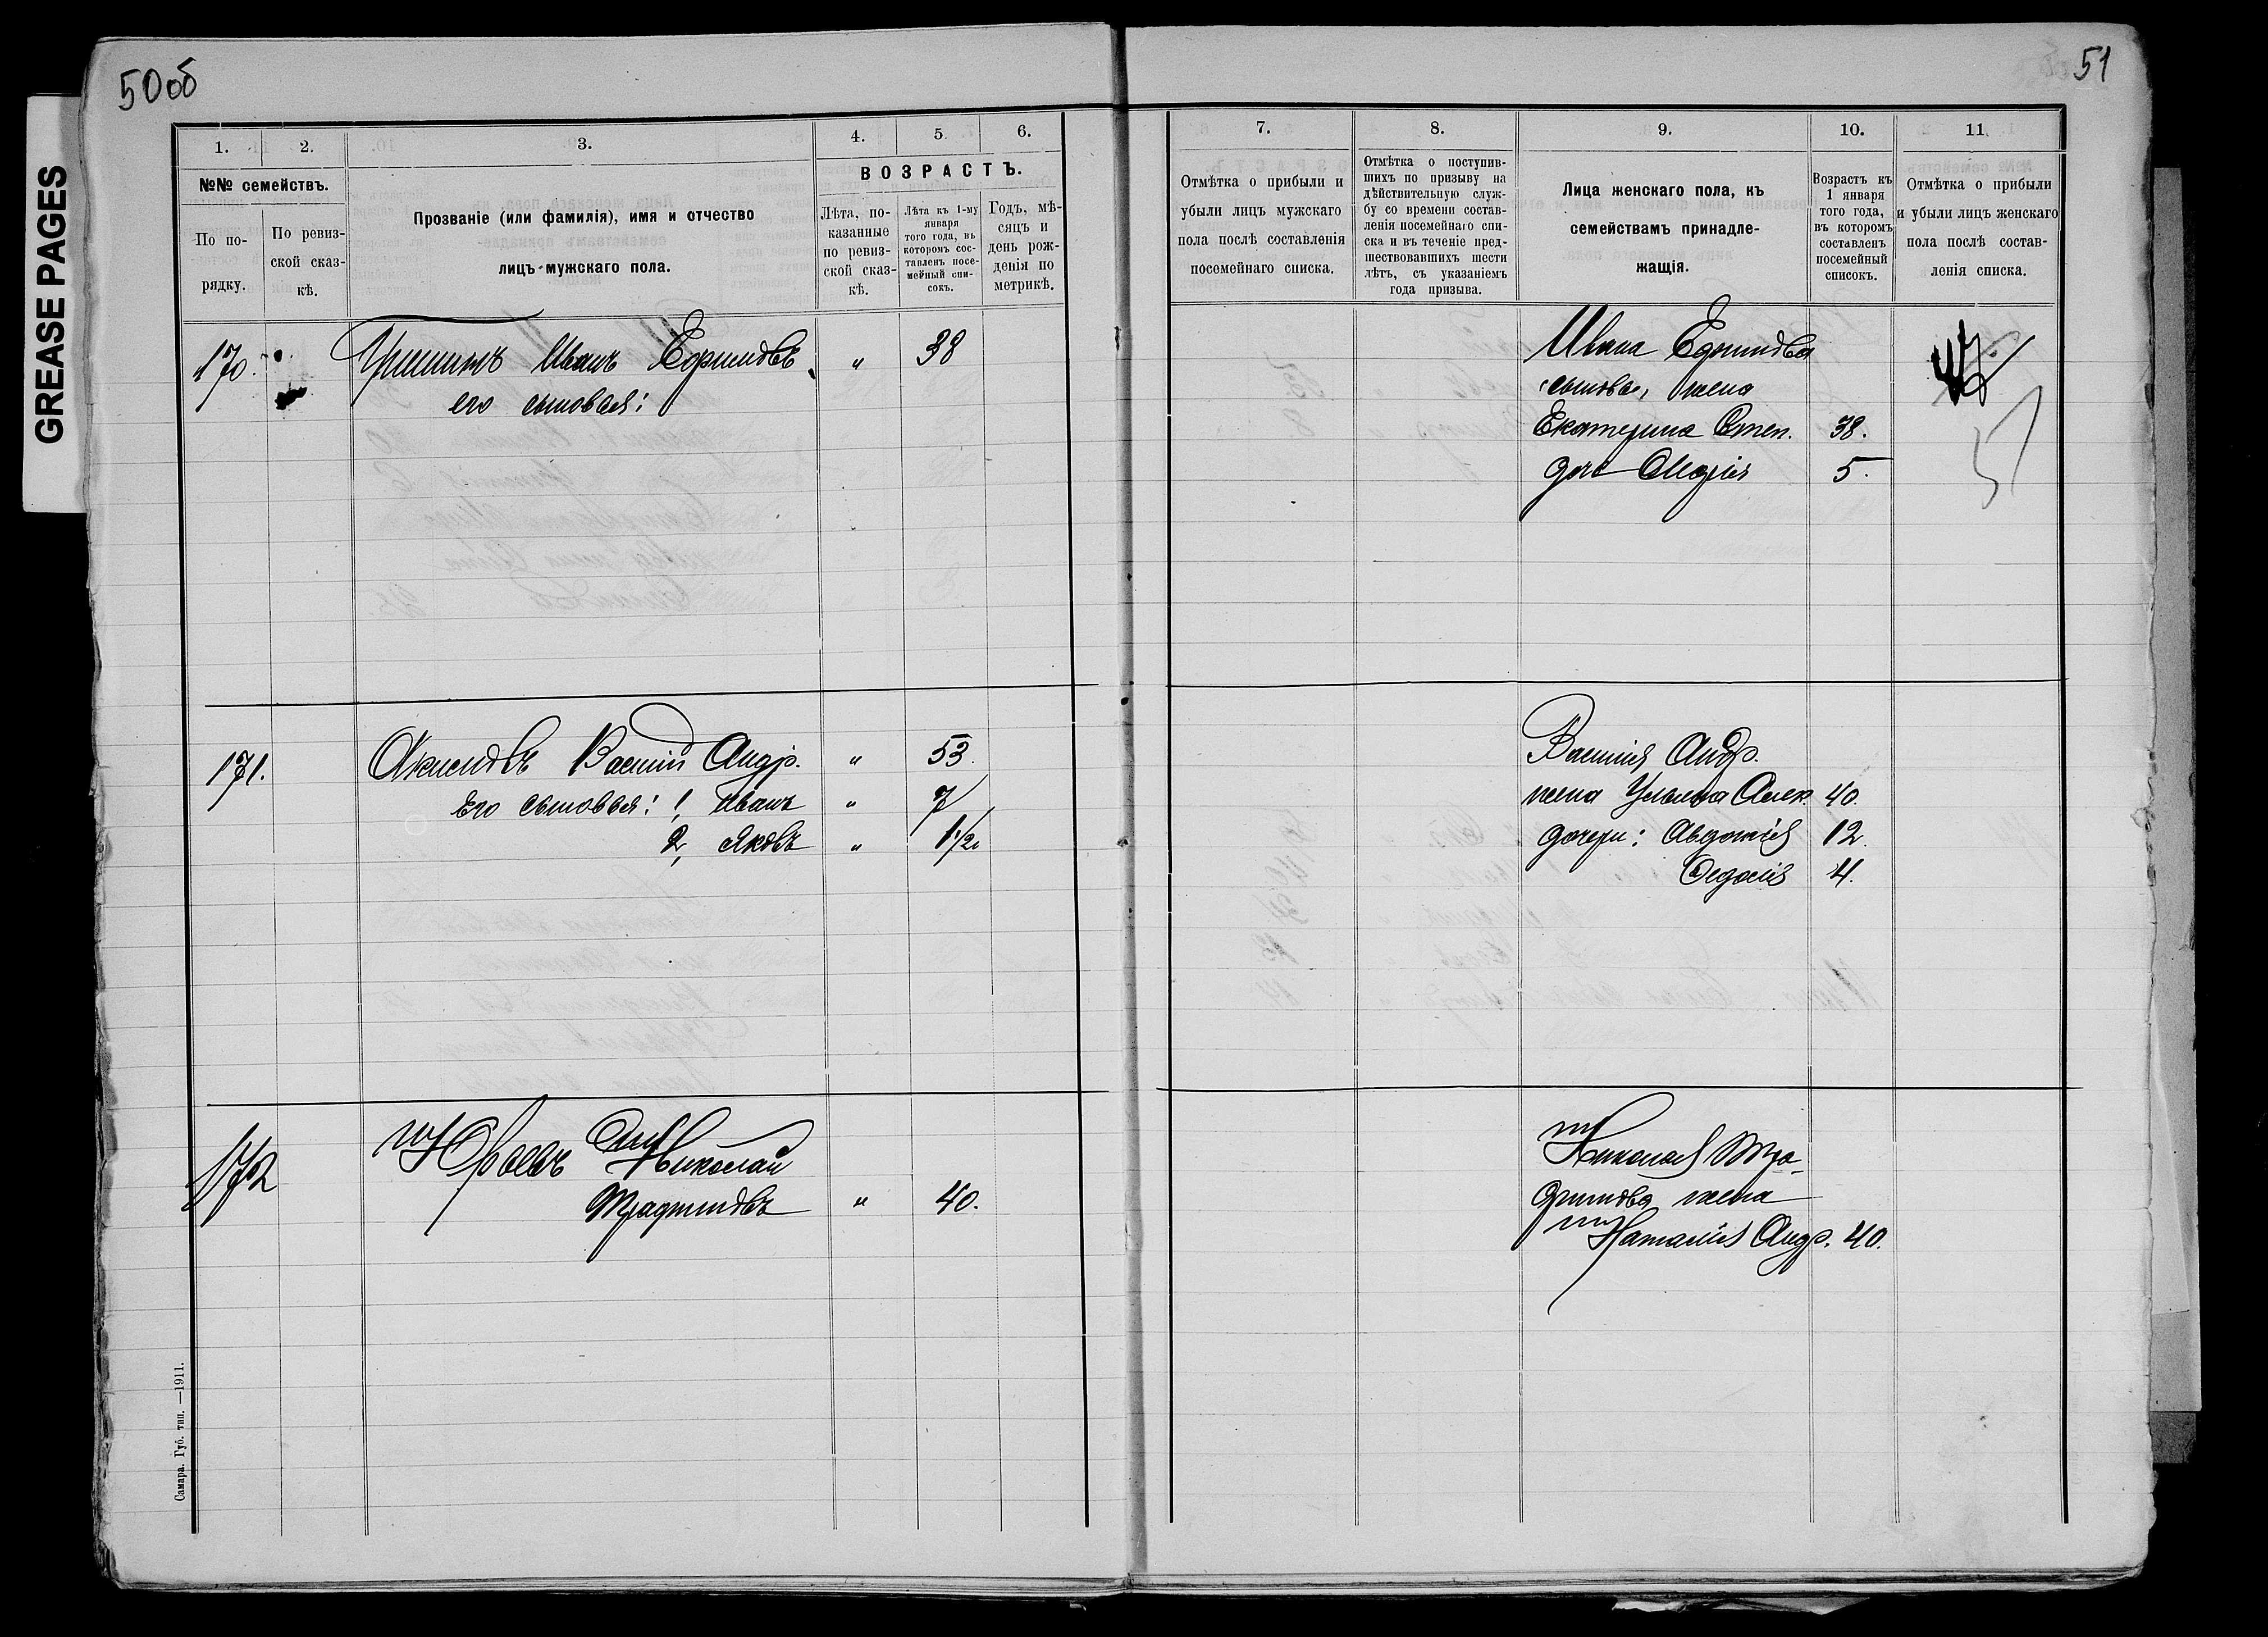 GREASE PAGES
50об
1.
2.
3.
4.
5.
6.
№№ семействъ.
По по-
рядку.
По ревиз-
ской сказ-
кѣ.
Прозваніе (или фамилія), имя и отчество
лицъ мужскаго пола.
ВОЗРАСТЪ.
Лѣта, по-
казанные
по ревиз-
ской сказ-
кѣ.
Лѣта къ 1-му
января
того года, въ
которомъ сос-
тавленъ посе-
мейный спи-
сокъ.
Годъ, мѣ-
сяцъ и
день рож-
денія по
метрикѣ.
170. Иванъ Ефимовъ „ 38
его сыновья:
171. Акимовъ Василій Андр. „ 53.
Его сыновья: 1, Иванъ „ 7
2, Яковъ „ 1 1/2
172 Николай
Трафимовъ „ 40.
Самара. Губ. тип. —1911.
51
7.
8.
9.
10.
11.
Отмѣтка о прибыли и
убыли лицъ мужскаго
пола послѣ составленія
посемейнаго списка.
Отмѣтка о поступив-
шихъ по призыву на
дѣйствительную служ-
бу со времени состав-
ленія посемейнаго спи-
ска и въ теченіе пред-
шествовавшихъ шести
лѣтъ, съ указаніемъ
года призыва.
Лица женскаго пола, къ
семействамъ принадле-
жащія.
Возрастъ къ
1 января
того года,
въ которомъ
составленъ
посемейный
списокъ.
Отмѣтка о прибыли
и убыли лицъ женскаго
пола послѣ состав-
ленія списка.
Ивана Ефимова
жена
Екатерина Степ. 38.
дочь Марія 5.
Василія Андр.
жена Ульяна Алек. 40.
дочери: Авдотія 12.
4.
Николая Тра-
фимова жена
Наталія Андр. 40.